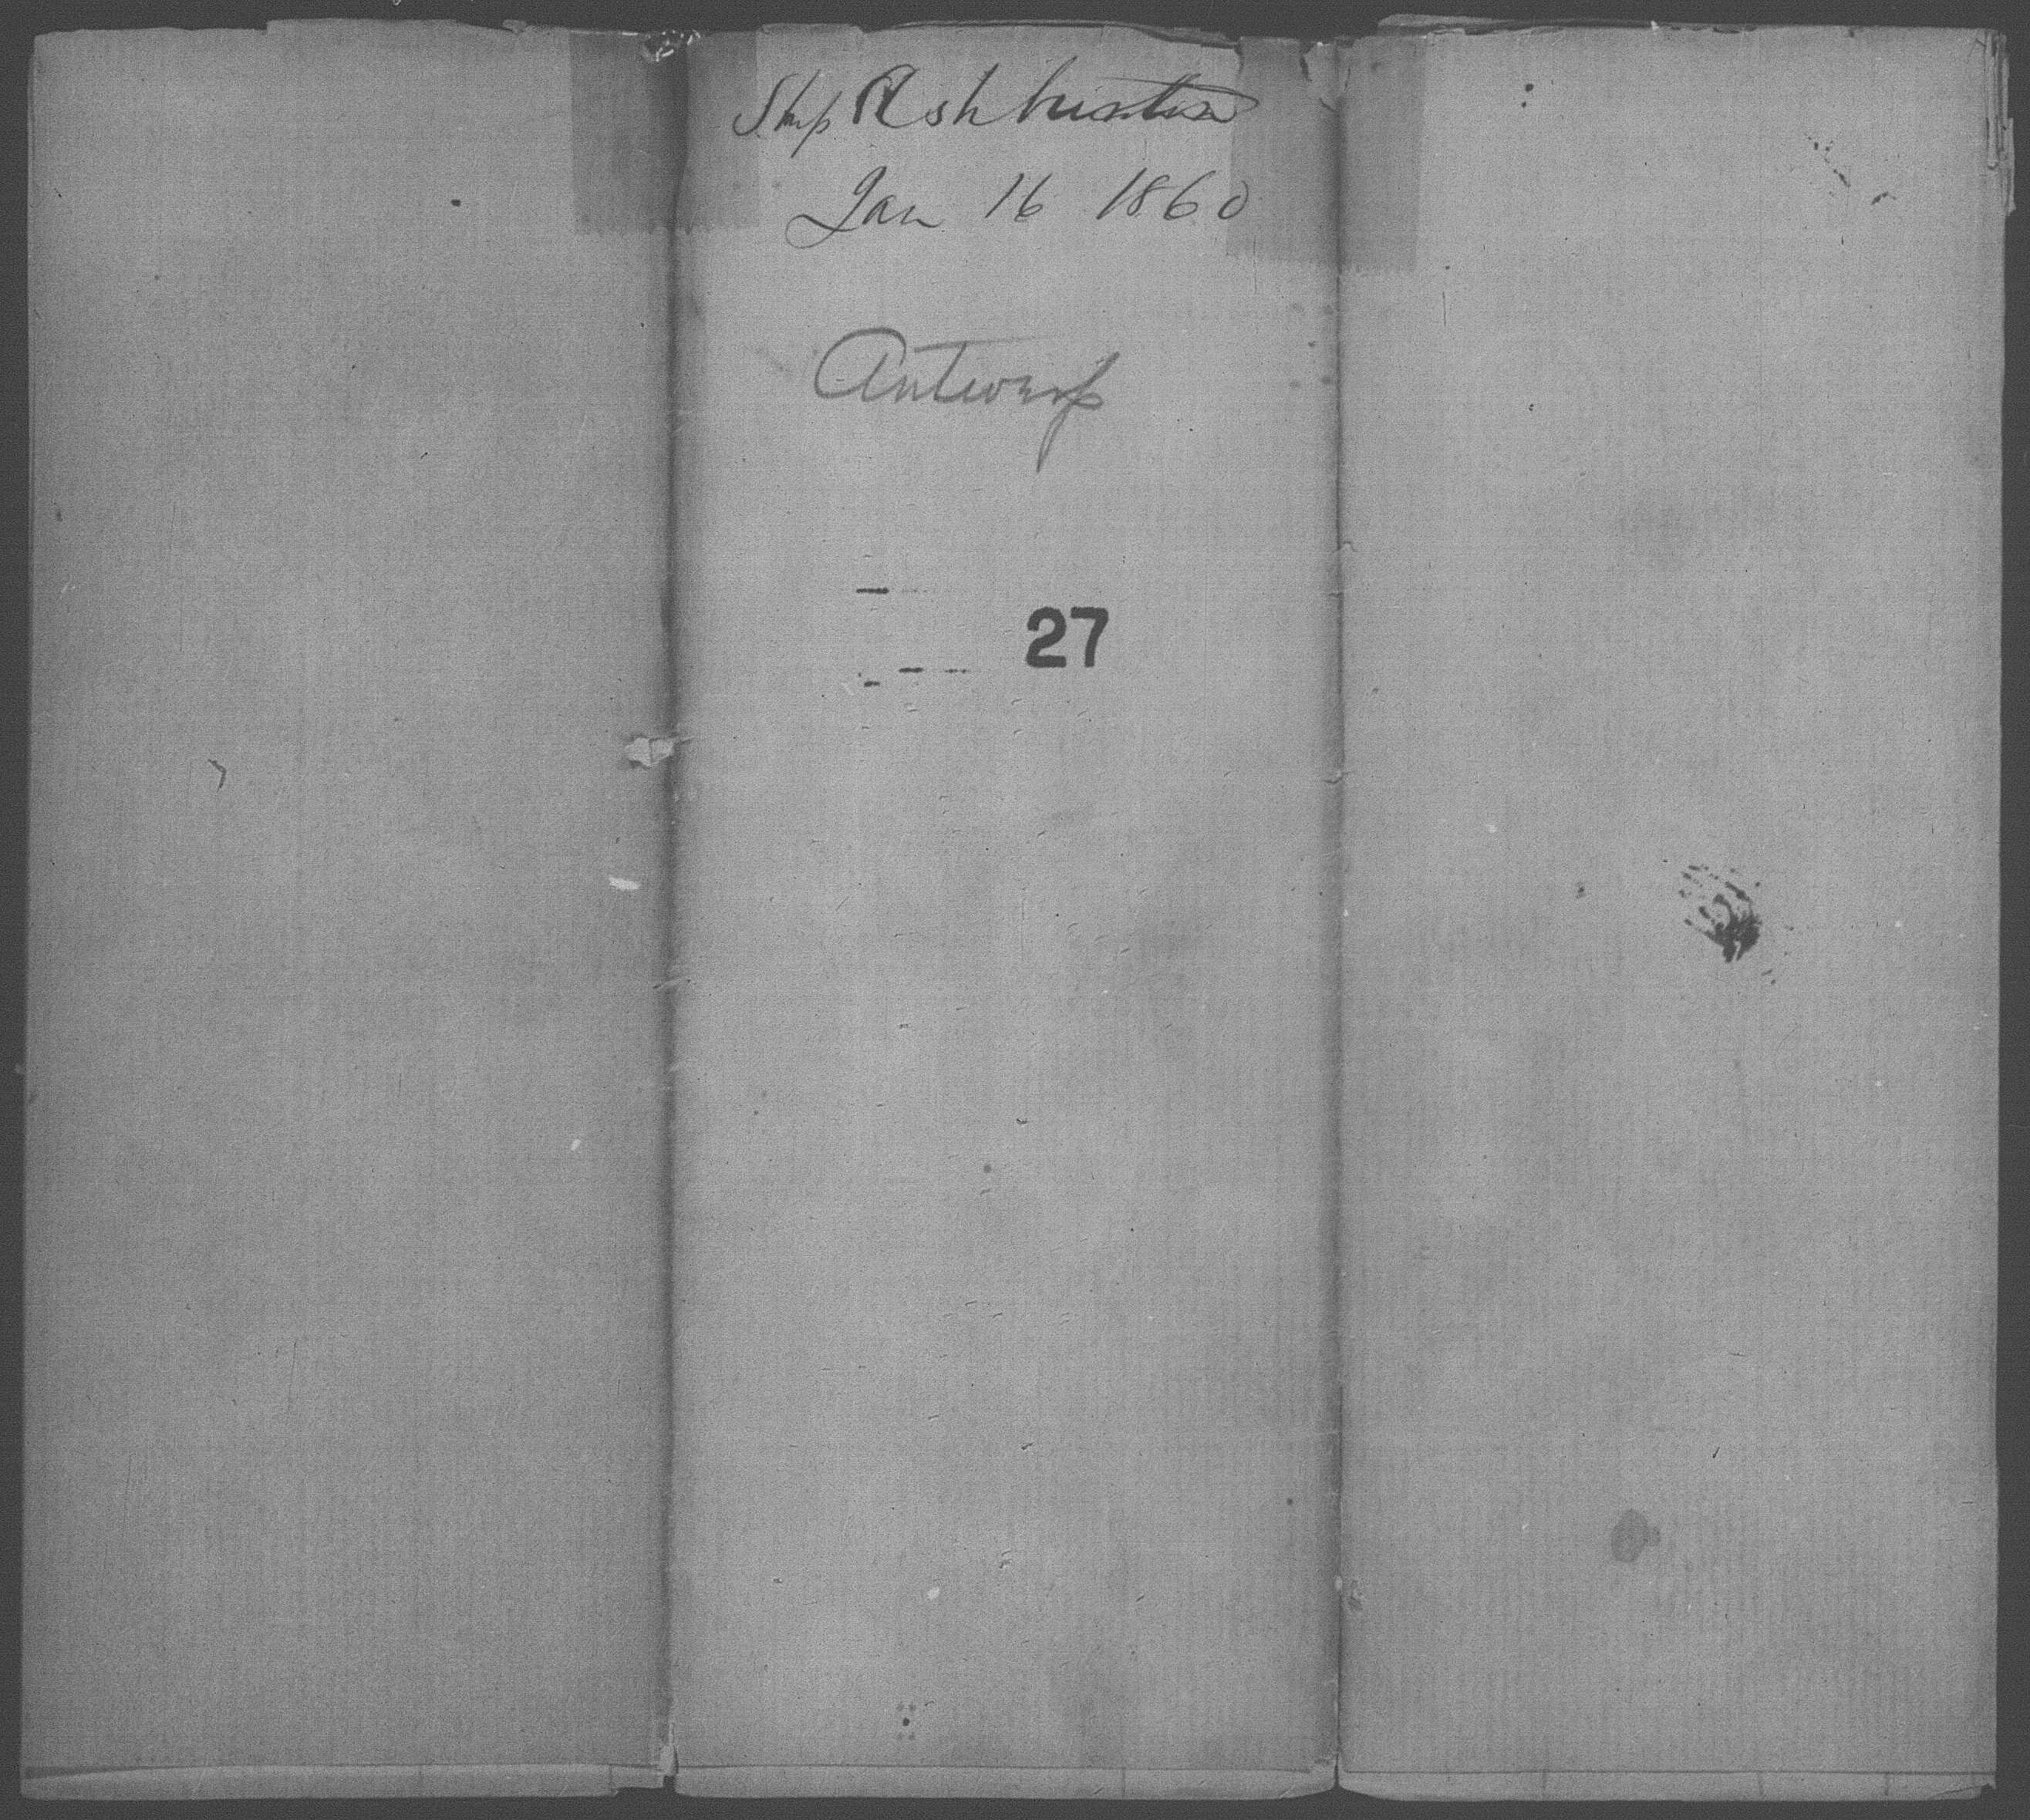 Ship Ashburton
Jan 16 1860
Antwerp
27